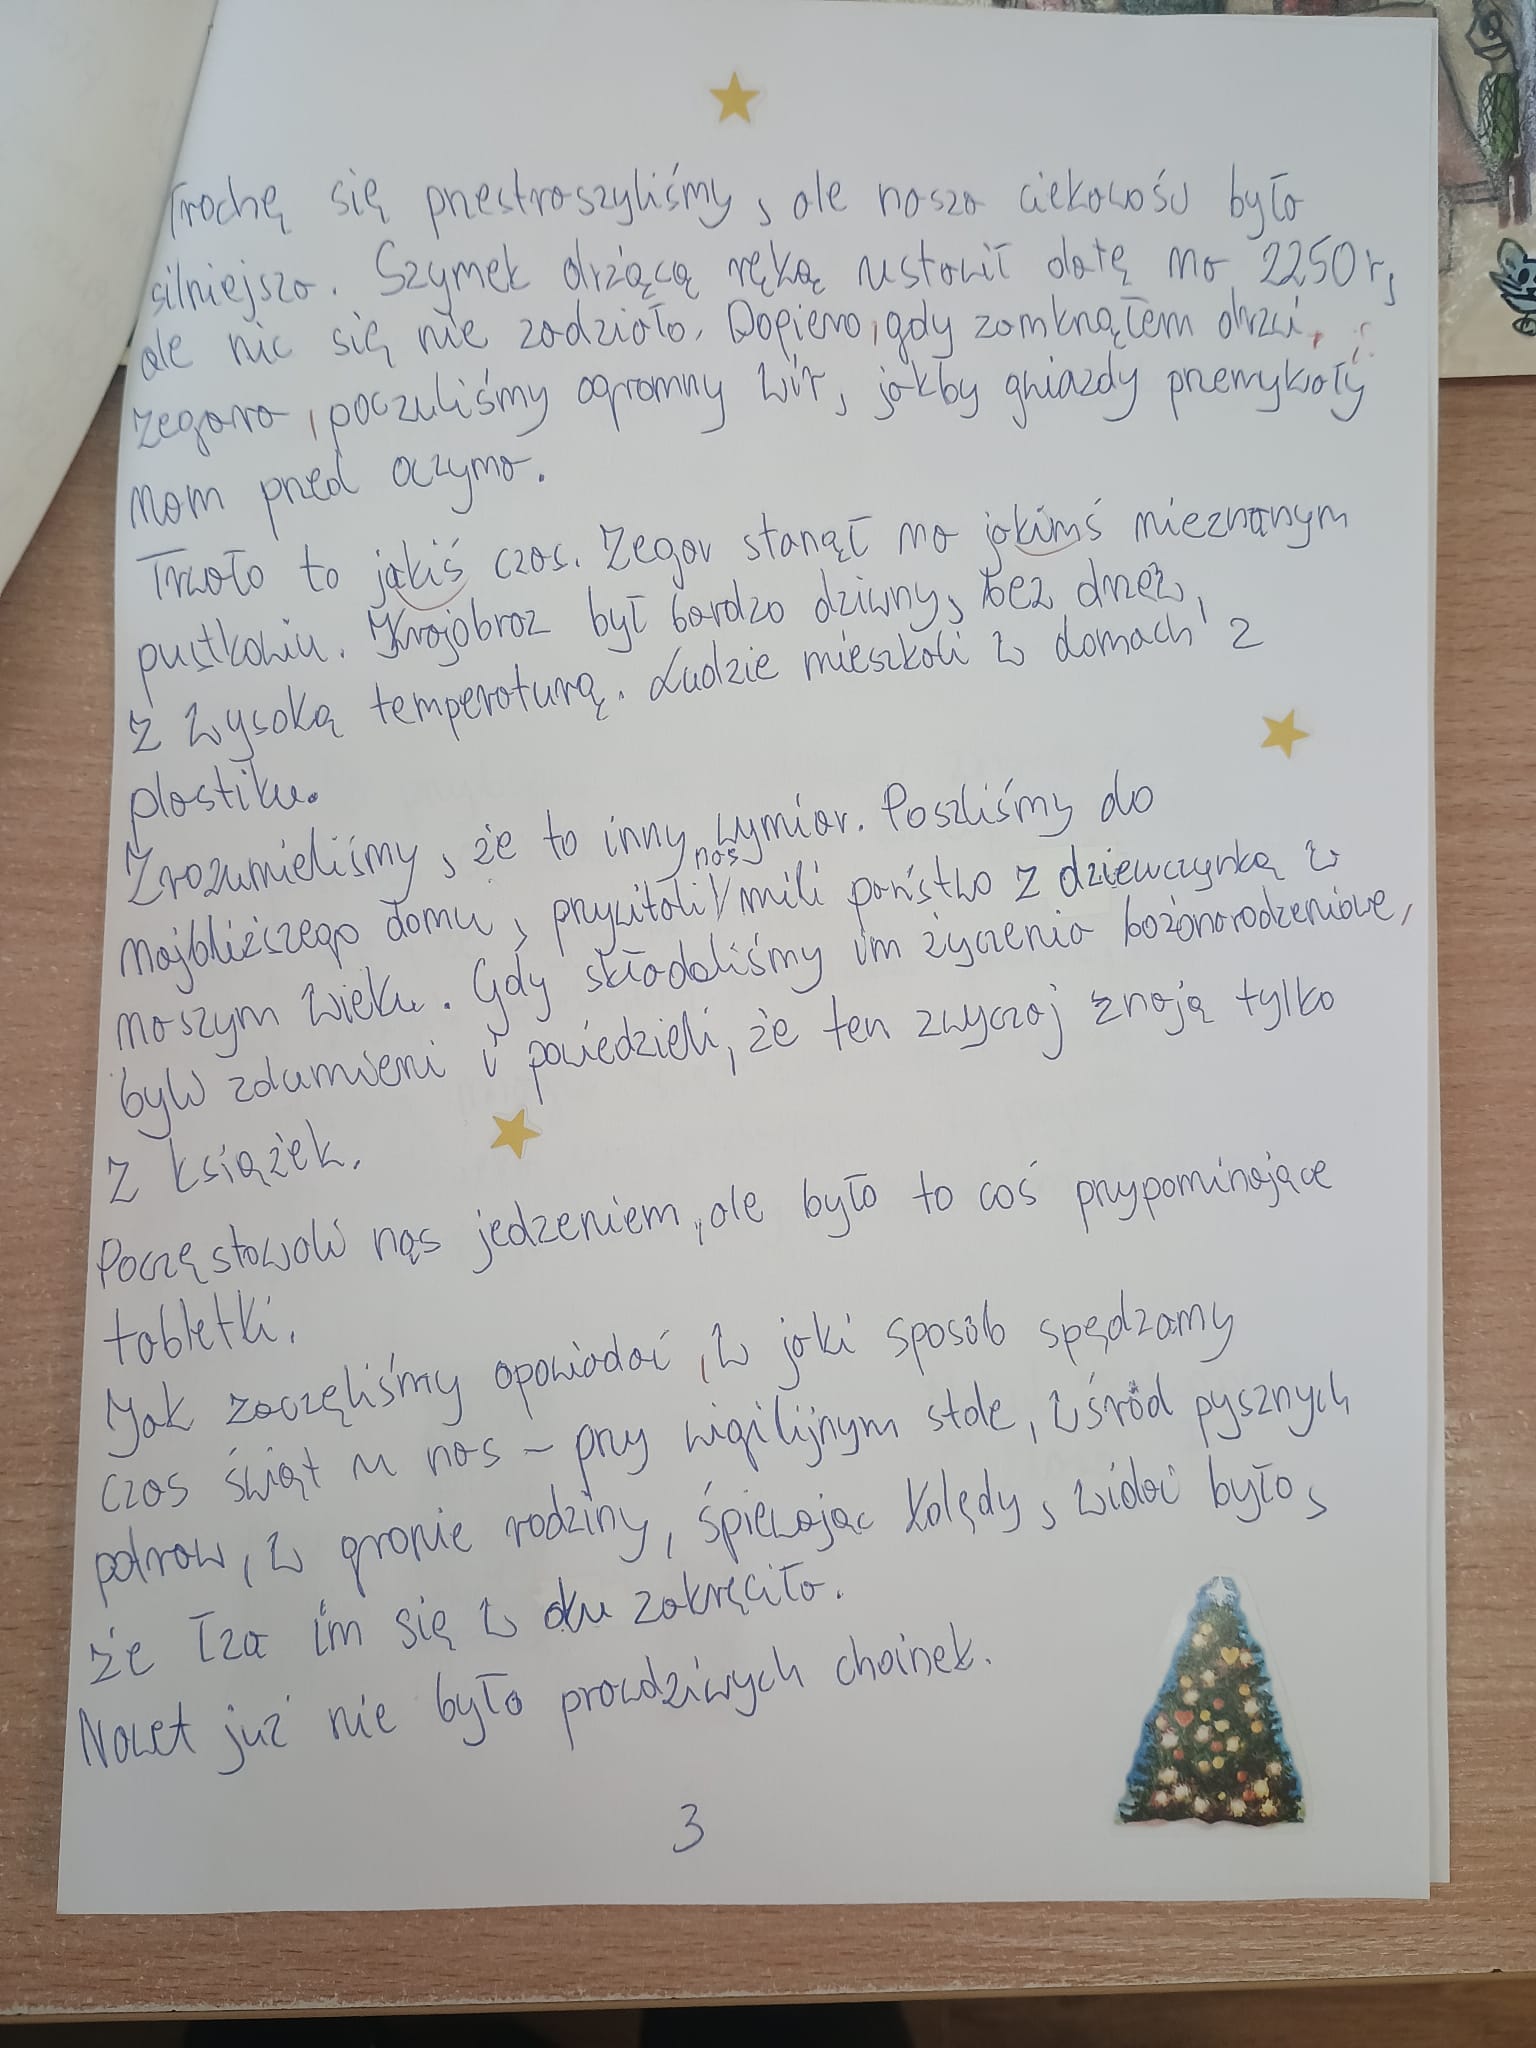 Trochę się przestraszyliśmy, ale nasza ciekawość była
silniejsza. Szymek drżącą ręką ustawił datę na 2250 r,
ale nic się nie zadziało. Dopiero, gdy zamknąłem drzwi
zegara, poczuliśmy ogromny wir, jakby gwiazdy przemykały
nam przed oczyma.
Trwało to jakiś czas. Zegar stanął na jakimś nieznanym
pustkowiu. Krajobraz był bardzo dziwny, bez drzew,
z wysoką temperaturą. Ludzie mieszkali w domach z
plastiku.
Zrozumieliśmy, że to inny wymiar. Poszliśmy do
najbliższego domu, przywitali nas mili państwo z dziewczynką w
naszym wieku. Gdy składaliśmy im życzenia bożonarodzeniowe,
byli zdumieni i powiedzieli, że ten zwyczaj znają tylko
z książek.
Poczęstowali nas jedzeniem, ale było to coś przypominające
tabletki.
Jak zaczęliśmy opowiadać, w jaki sposób spędzamy
czas świąt u nas - przy wigilijnym stole, wśród pysznych
potraw, w gronie rodziny, śpiewając kolędy, widać było,
że łza im się w oku zakręciła.
Nawet już nie było prawdziwych choinek.
3